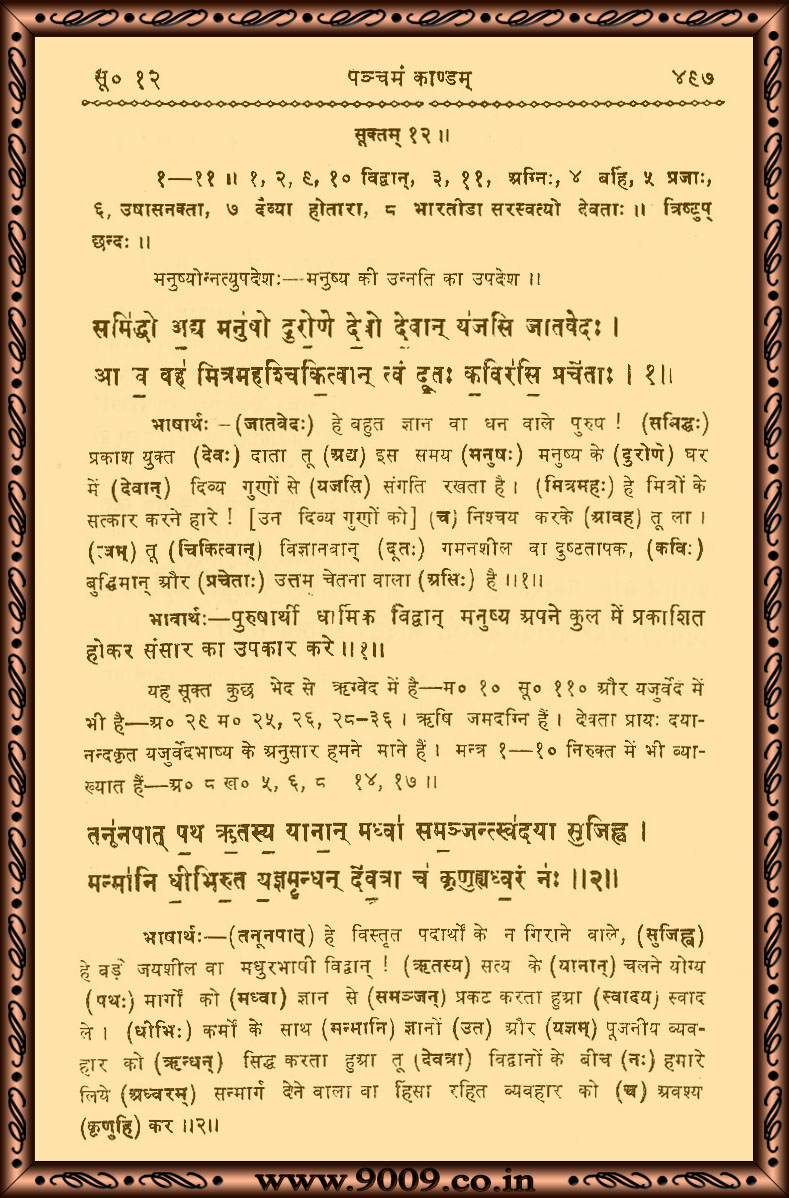 सू० १२ पञ्चमं काण्डम् ४९७
सूक्तम् १२ ॥
१—११ ॥ १, २, ९, १० विद्वान्, ३, ११, अग्निः, ४ बर्हि, ५ प्रजाः,
६, उषासनक्ता, ७ दैव्या होतारा, ८ भारतीडा सरस्वत्यो देवताः ॥ त्रिष्टुप्
छन्दः ॥
मनुष्योन्नत्युपदेशः—मनुष्य की उन्नति का उपदेश ॥
समि॑द्धो अ॒द्य मनु॑षो दुरो॒णे दे॒वो दे॒वान् य॑जसि जातवेदः ।
आ च॒ वह॑ मित्रमहश्चिकि॒त्वान् त्वं दू॒तः क॒विर॑सि॒ प्रचे॑ताः । १॥
भाषार्थः –(जातवेदः) हे बहुत ज्ञान वा धन वाले पुरुष ! (समिद्धः)
प्रकाश युक्त (देवः) दाता तू (अद्य) इस समय (मनुषः) मनुष्य के (दुरोणे) घर
में (देवान्) दिव्य गुणों से (यजसि) संगति रखता है । (मित्रमहः) हे मित्रों के
सत्कार करने हारे ! [उन दिव्य गुणों को] (च) निश्चय करके (आवह) तू ला ।
(त्वम्) तू (चिकित्वान्) विज्ञानवान् (दूतः) गमनशील वा दुष्टतापक, (कविः)
बुद्धिमान् और (प्रचेताः) उत्तम चेतना वाला (असिः) है ॥१॥
भावार्थः—पुरुषार्थी धार्मिक विद्वान् मनुष्य अपने कुल में प्रकाशित
होकर संसार का उपकार करे ॥१॥
यह सूक्त कुछ भेद से ऋग्वेद में है—म० १० सू० ११० और यजुर्वेद में
भी है—अ० २९ म० २५, २६, २८-३६ । ऋषि जमदग्नि हैं । देवता प्रायः दया-
नन्दकृत यजुर्वेदभाष्य के अनुसार हमने माने हैं । मन्त्र १—१० निरुक्त में भी व्या-
ख्यात हैं—अ० ८ ख० ५, ६, ८ १४, १७ ॥
तनू॑नपात् प॒थ ऋ॒तस्य॒ याना॒न् मध्वा॑ सम॒ञ्जन्त्स्व॑दया सु॒जिह्व ।
मन्मा॑नि धी॒भिरु॒त य॒ज्ञमृ॒न्धन् दे॑व॒त्रा च॑ कृणुह्यध्व॒रं नः॑ ॥२॥
भाषार्थः—(तनूनपात्) हे विस्तृत पदार्थों के न गिराने वाले, (सुजिह्व)
हे बड़े जयशील वा मधुरभाषी विद्वान् ! (ऋतस्य) सत्य के (यानान्) चलने योग्य
(पथः) मार्गों को (मध्वा) ज्ञान से (समञ्जन्) प्रकट करता हुआ (स्वादय) स्वाद
ले । (धीभिः) कर्मों के साथ (मन्मानि) ज्ञानों (उत) और (यज्ञम्) पूजनीय व्यव-
हार को (ऋन्धन्) सिद्ध करता हुआ तू (देवत्रा) विद्वानों के बीच (नः) हमारे
लिये (अध्वरम्) सन्मार्ग देने वाला वा हिंसा रहित व्यवहार को (च) अवश्य
(कृणुहि) कर ॥२॥
www.9009.co.in